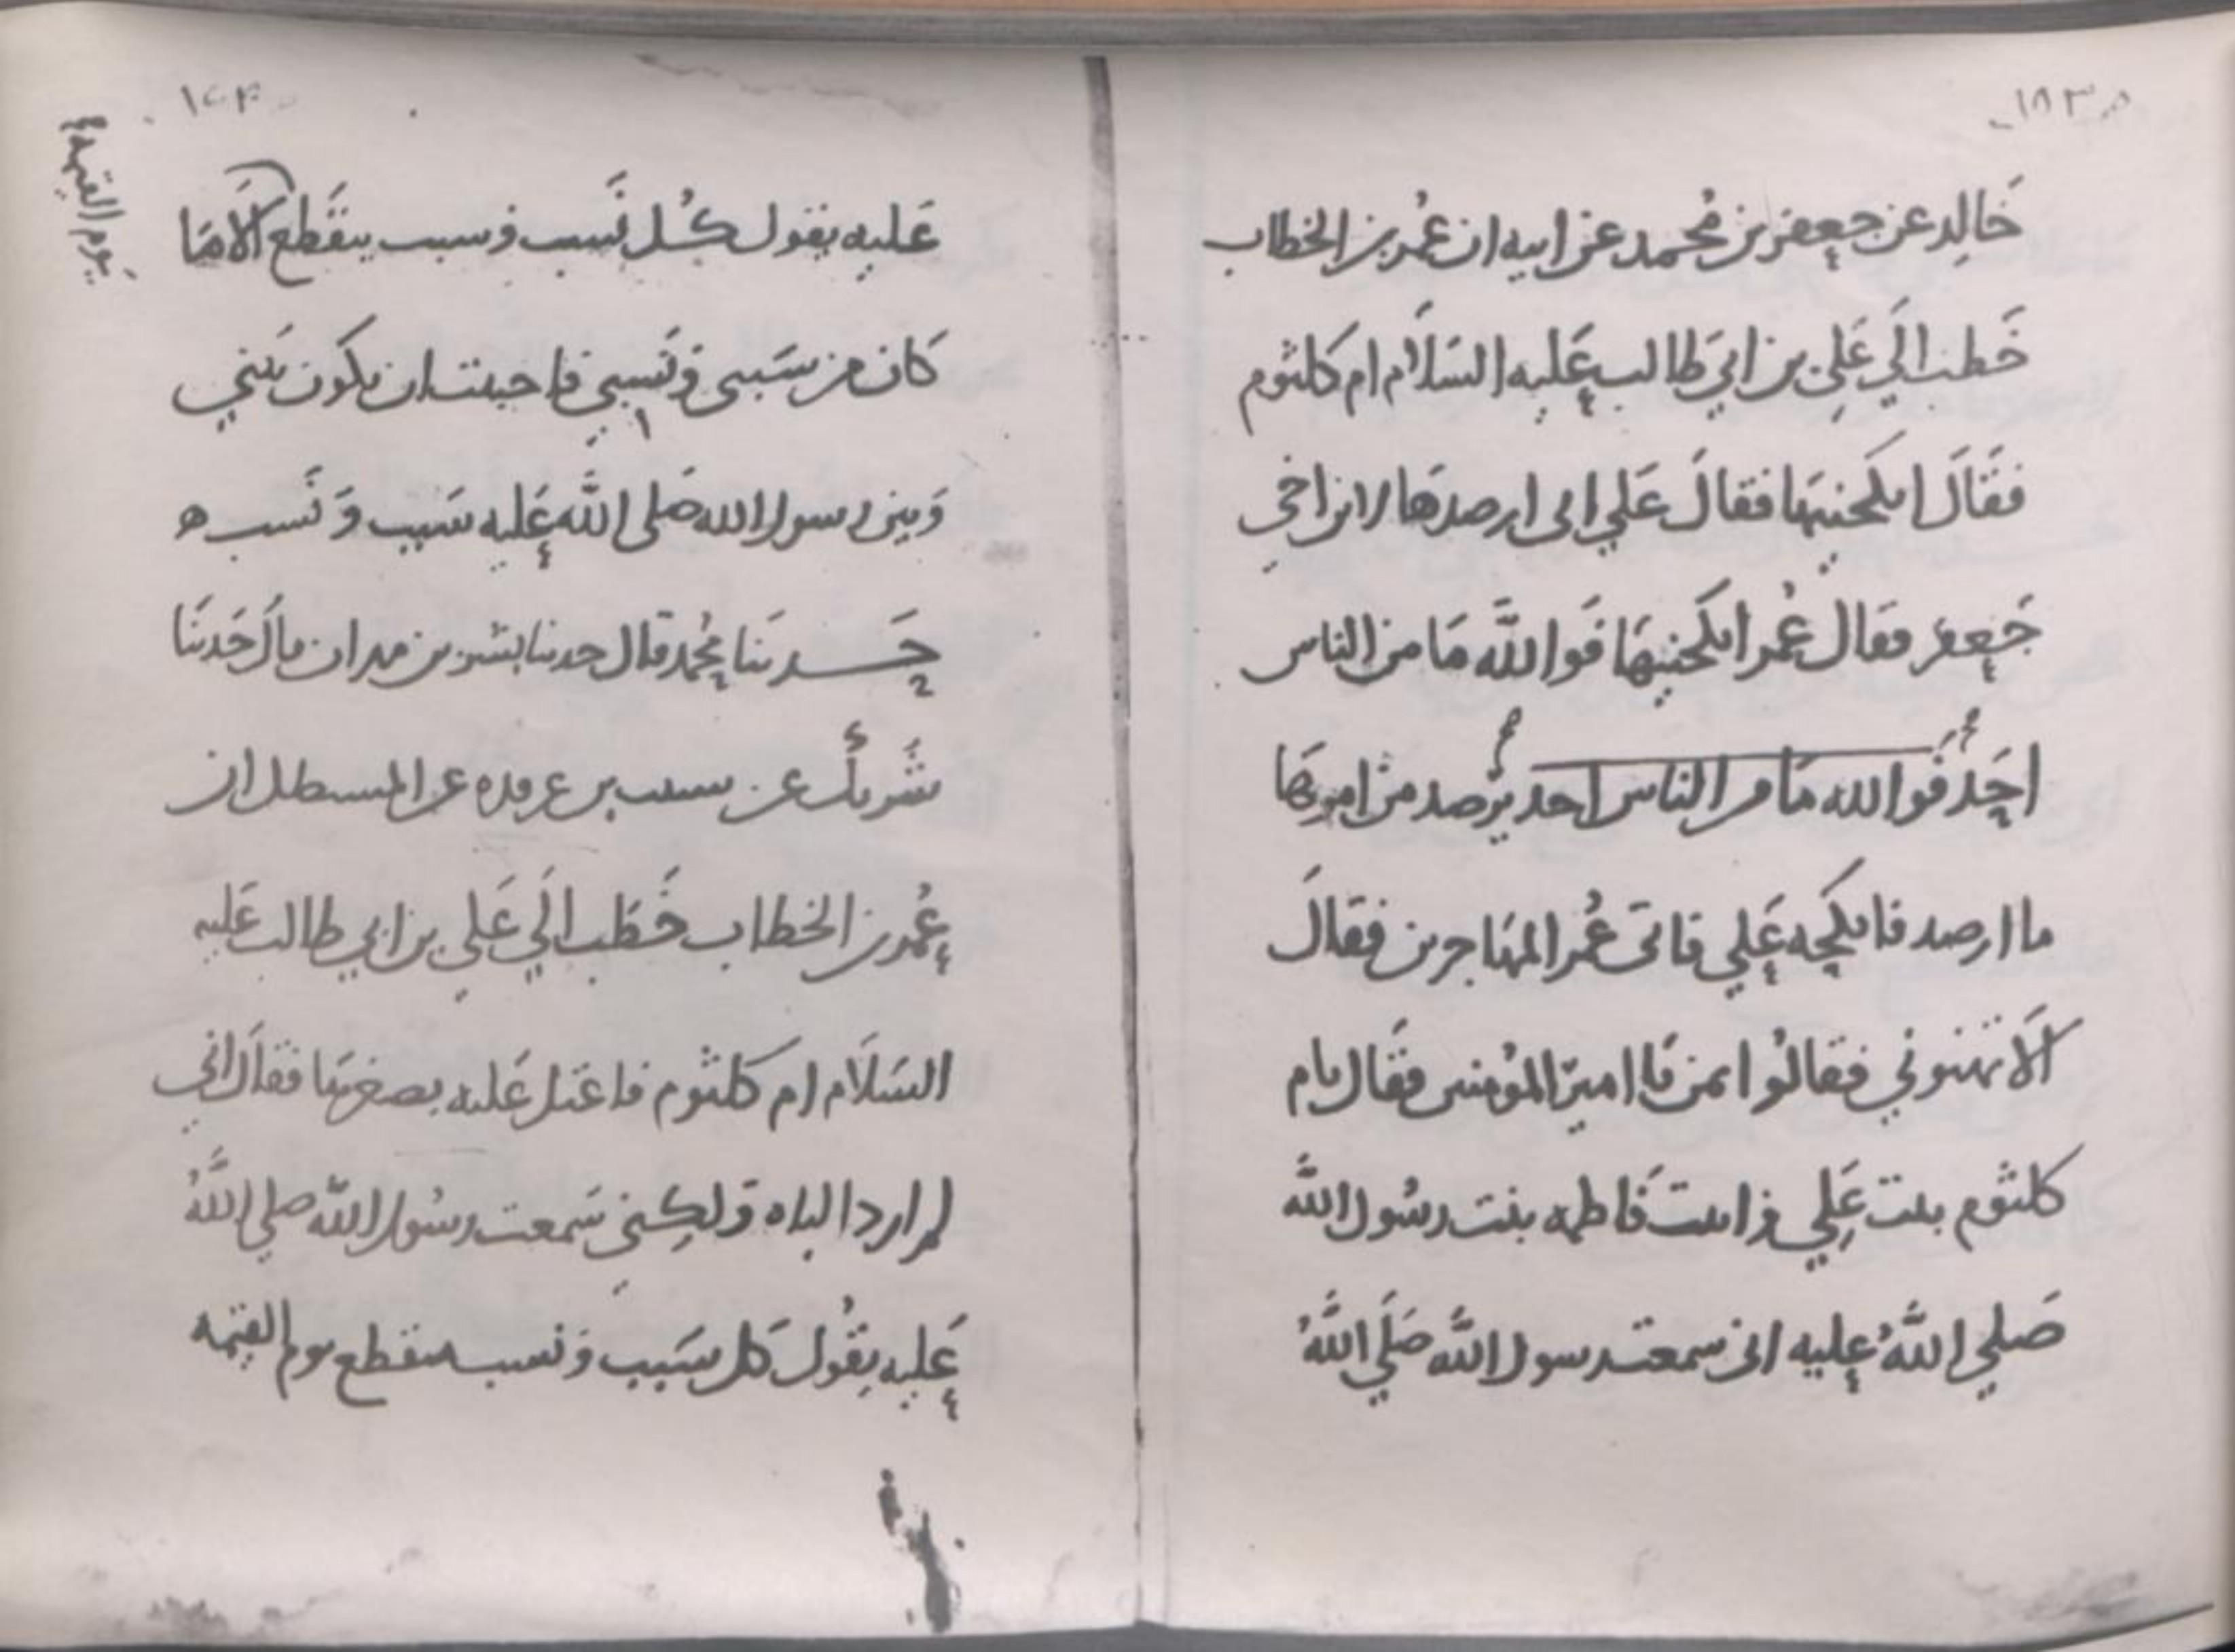 ١٥٣
خَالِد عن جعفر بن مُحمد عن ابيه ان عُمر بن الخطاب
خَطب الَي عَلِي بن ابي طَالب عَليه السَلَام ام كَلثوم
فقَالَ انكحنيهَا فقَالَ عَلي اني ارصدهَا لابن اخي
جَعفر فقال عُمر انكحنيهَا فَوالله مَا من الناس
احَدٌ فَوالله مَا من الناس احد يرْصد من امرهَا
ما ارصد فانكحه عَلي فاتى عُمر المهَاجرين فقالَ
الَا تهنوني فقالُوا بمن يَا امير المؤمنين فقَال بام
كلثوم بنت عَلِي وابنت فَاطمه بنت رسُول الله
صَلي اللهُ عليه اني سمعت رسول الله صَلَي اللهُ
١٥٤
عَليه يقول كُل نَسب وسبب ينقَطع الَا مَا
يَوم القيمة
كَان من سَببي ونَسبي فاحببت ان يكون بَيني
وَبين رسول الله صَلى الله عَليه سَبب وَ نَسب ه
حَدثنَا محُمد قال حدثنا بشر بن مهران قالَ حَدثنَا
شَريك عن شبيب بن غرقده عن المستظل ان
عُمر بن الخطاب خَطَب الَي عَلي بن ابي طالب عَليه
السَلَام ام كلثوم فاعتل عَليه بصغرهَا فقَال اني
لم ارد الباه وَلكِني سَمعت رسُول الله صلي اللهُ
عَليه يقُول كَل سَبب وَنسب منقطع يوم القيمه